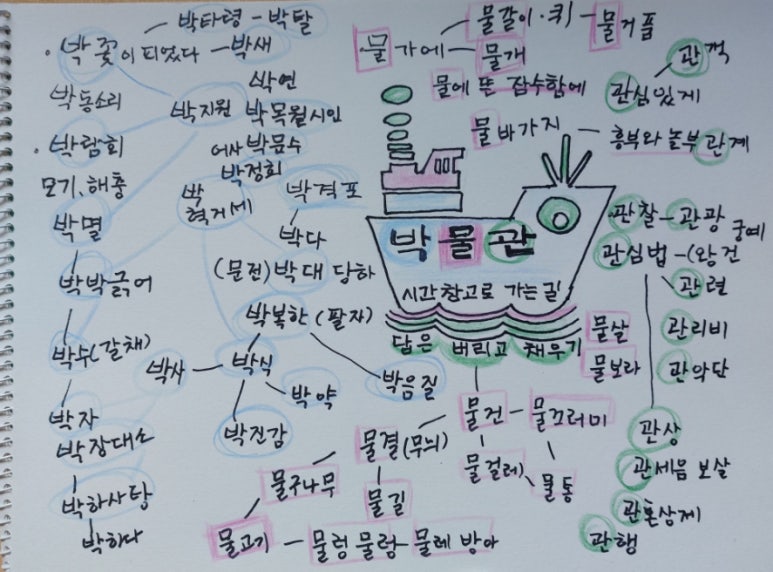 박타령 - 박탈
· 박꽃이 피었다 - 박새
박동소리
박지원
박연
박목월시인
· 박람회
어사 박문수
박정희
모기, 해충
박멸
박혁거세
박격포
박다
(문전) 박대 당하
박박긁어
박복한 (팔자)
박수(갈채)
박사 - 박식
박약
박음질
박자
박장대소
박진감
박하사탕
박하다
· 물가에
물갈이 · 퀴 - 물거품
물개
물에 뜬 잠수함에
물바가지 - 흥부와 놀부 관계
관객
관심있게
박물관
시간창고로 가는길
담은 버리고 채우기
관찰 - 관광
관심법 - (왕건
궁예
관련
물살
관리비
물보라
관악단
물건 - 물끄러미
물결(무늬)
물걸레 물통
물구나무
물길
물고기 - 물렁물렁 - 물레방아
관상
관세음보살
관혼상제
관행